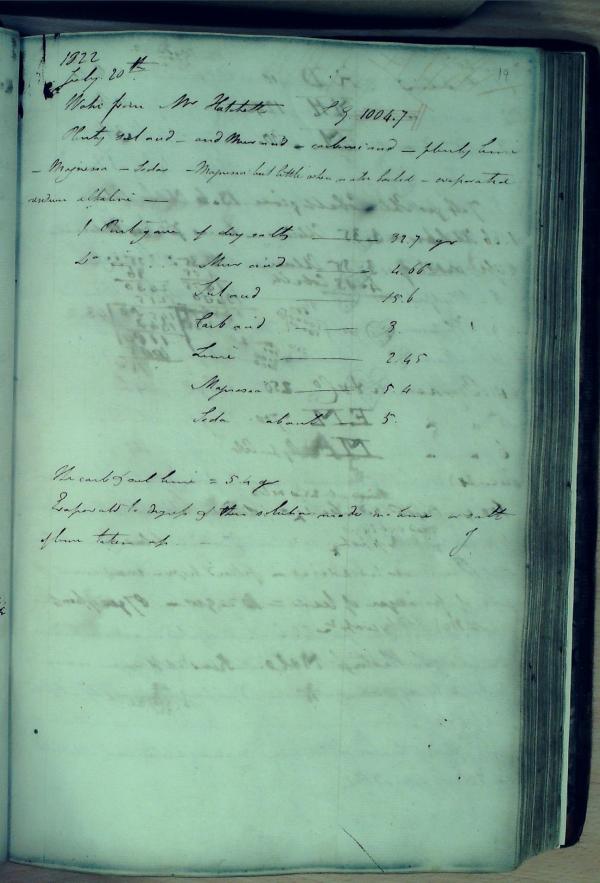 19
1822
July 20th
Water from Mr Hatchett S.G. 1004.7
Plenty Sul acid - and Mur acid - carbonic acid - plenty Lime
- Magnesia - Soda - Magnesia but little when water boiled - evaporated
alkaline -
1 Pint gave of dry salts 32.7 grs
Do Mur acid 4.66
Sul acid 15.6
Carb acid 3.
Lime 2.45
Magnesia 5.4
Soda about 5.
The carb of lime = 5.4 gr
Evaporated to dryness of the solution made no lime or salt
of lime taken up